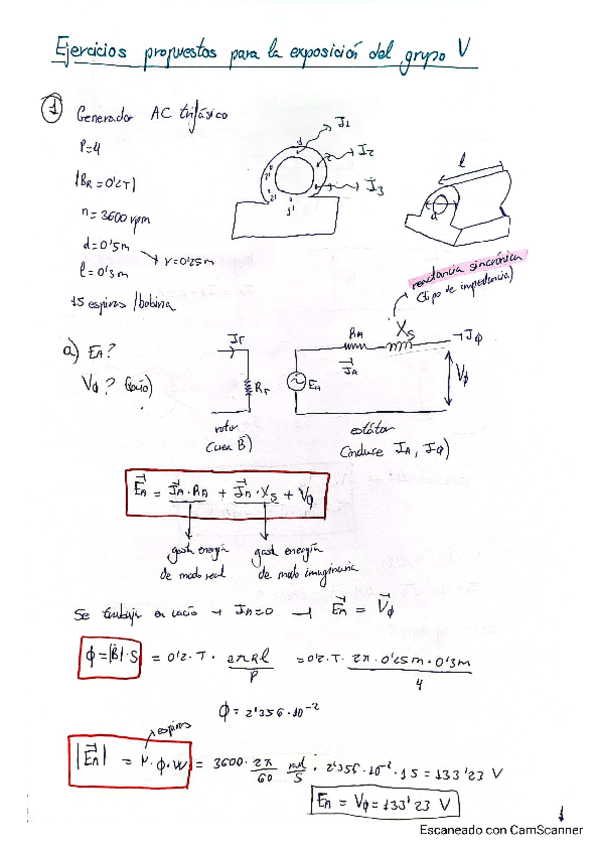 Ejercicios propuestos para la exposición del grupo V
1 Generador AC trifásico
P=4
|BR = 0'2T|
n = 3600 rpm
d = 0'5m → r=0'25m
l = 0'3m
15 espiras /bobina
J1
J2
J3
l
d
reactancia sincrónica
(tipo de impedancia)
a) EA?
Vϕ? (vacío)
Jr
Rr
rotor
(crea B⃗)
RA
XS
→Jϕ
JA
EA
Vϕ
estátor
(induce JA, Jϕ)
EA = JA·RA + JA·XS + Vϕ
gasta energía
de modo real
gasta energía
de modo imaginaria
Se trabaja en vacío → JA=0 → EA = Vϕ
ϕ=|B|·S = 0'2·T· 2πRl/P = 0'2·T· 2π·0'25m·0'3m/4
ϕ = 2'356·10⁻²
espiras
|EA| = N·ϕ·W = 3600· 2π/60 rad/s · 2'356·10⁻²·15 = 133'23 V
EA = Vϕ = 133'23 V
1
Escaneado con CamScanner